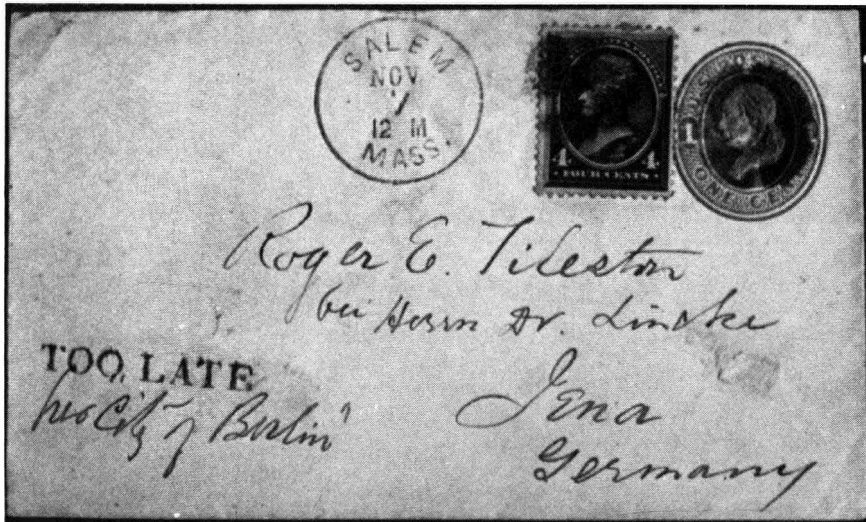 SALEM
NOV
12 M
MASS.
4 4
FOUR CENTS
1
ONE CE
Roger E. Tileston
bei Herrn Dr. Lincke
Jena
Germany
TOO LATE
City of Berlin"